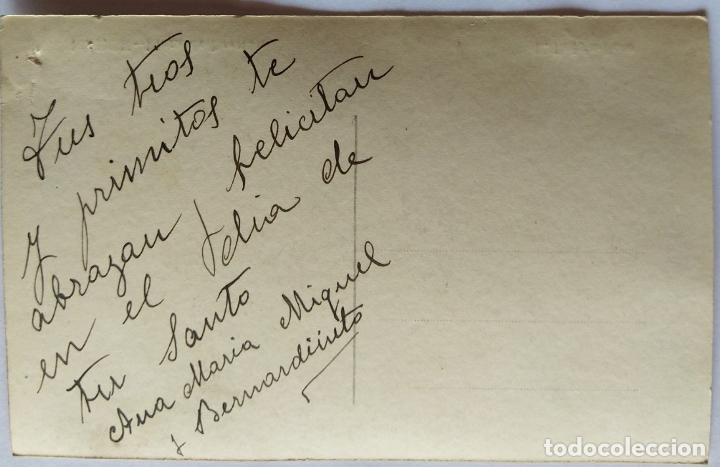 Tus tios
y primitos te
abrazan y felicitan
en el dia de
tu Santo
Ana Maria Miguel
y Bernardinito
todocoleccion.net